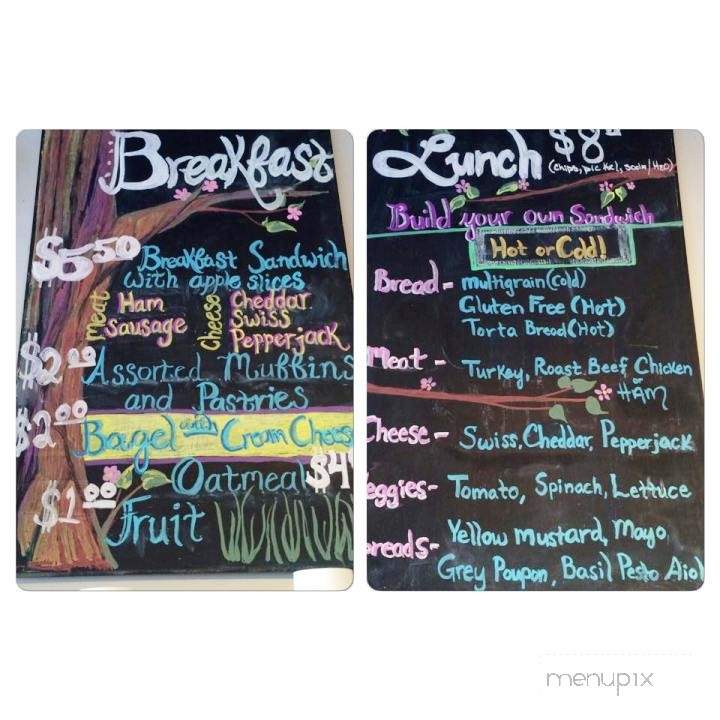 Breakfast
$5.50 Breakfast Sandwich
with apple slices
Meat Ham Cheese Cheddar
Sausage Swiss
Pepperjack
$2.00 Assorted Muffins
and Pastries
$2.00 Bagel with Cream Cheese
Oatmeal $4
$1.00 Fruit
Lunch $8
(chips, pickel, soda/H2O)
Build your own Sandwich
Hot or Cold!
Bread- multigrain (cold)
Gluten Free (Hot)
Torta Bread (Hot)
Meat- Turkey, Roast Beef, Chicken
or HAM
Cheese- Swiss, Cheddar, Pepperjack
eggies- Tomato, Spinach, Lettuce
preads- Yellow mustard, Mayo,
Grey Poupon, Basil Pesto Aiol
menupix